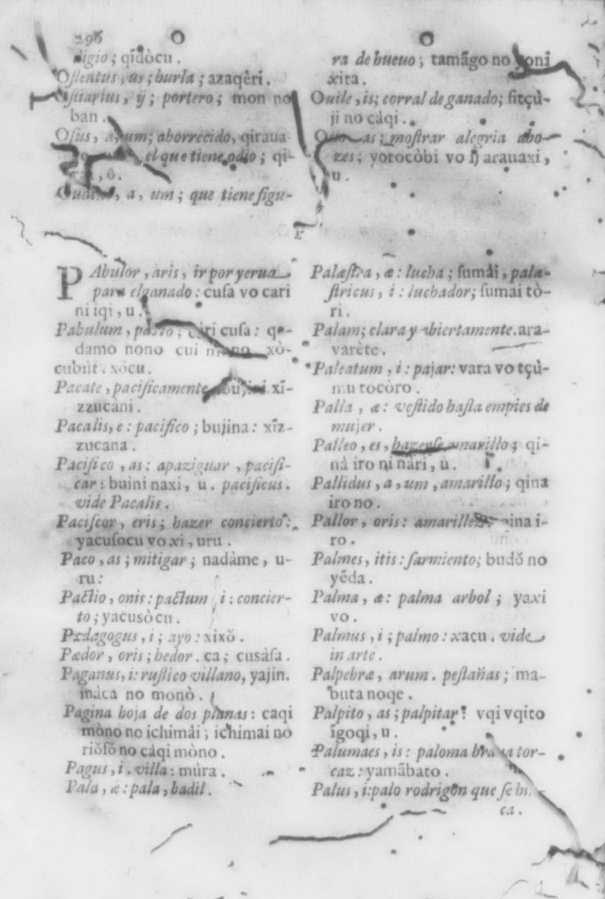 296
digio; qĩdòcu.
Ostentus, us; burla; azaqêri.
Ostiarius, ij; portero; mon no
ban.
Osus, a, um; aborrecido, qiraua
el que tiene odio; qi-
, ô.
a, um; que tiene figu-
ra de hueuo; tamãgo no
xita.
Ouile, is; corral de ganado; fitçù-
ji no càqi.
as; mostrar alegria abo-
zes; yorocòbi vo arauaxi,
u.
PAbulor, aris, ir por yerua
para el ganado: cusa vo cari
ni iqi, u.
Pabulum, pasto; cari cusa: qe-
damo nono cui mono xò-
cubut. xòcu.
Pacate, pacificamente, bujini xĩ-
zzucani.
Pacalis, e: pacifico; bujina: xĩz-
zucana.
Pacifico, as: apaziguar, pacifi-
car: buini naxi, u. pacificus.
vide Pacalis.
Paciscor, eris; hazer concierto:
yacusocu vo xi, uru.
Paco, as; mitigar; nadàme, u-
ru:
Pactio, onis: pactum, i: concier-
to; yacusòcu.
Pædagogus, i; ayo: xixŏ.
Pædor, oris; hedor. ca; cusâsa.
Paganus, i: rustico villano, yajin.
inàca no monò.
Pagina hoja de dos planas: caqi
mòno no ichimâi; ichimai no
riŏfŏ no càqi mòno.
Pagus, i. villa: mùra.
Pala, æ: pala, badil.
Palæstra, æ: lucha; sumâi, palæ-
stricus, i: luchador; sumai tò-
ri.
Palam; clara y abiertamente. ara-
varête.
Paleatum, i: pajar: vara vo tçù-
mu tocòro.
Palla, æ: vestido hasta empies de
mujer.
Palleo, es, hazerse amarillo; qi-
nà iro ni nàri, u.
Pallidus, a, um, amarillo; qina
iro no.
Pallor, oris: amarillez; qina i-
ro.
Palmes, itis: sarmiento; budŏ no
yêda.
Palma, æ: palma arbol; yaxi
vo.
Palmus, i; palmo: xacu. vide
in arte.
Palpebræ, arum. pestañas; ma-
buta noqe.
Palpito, as; palpitar: vqi vqito
ĩgoqi, u.
Palumaes, is: paloma braua tor-
caz: yamãbato.
Palus, i: palo rodrigon que se
ca.